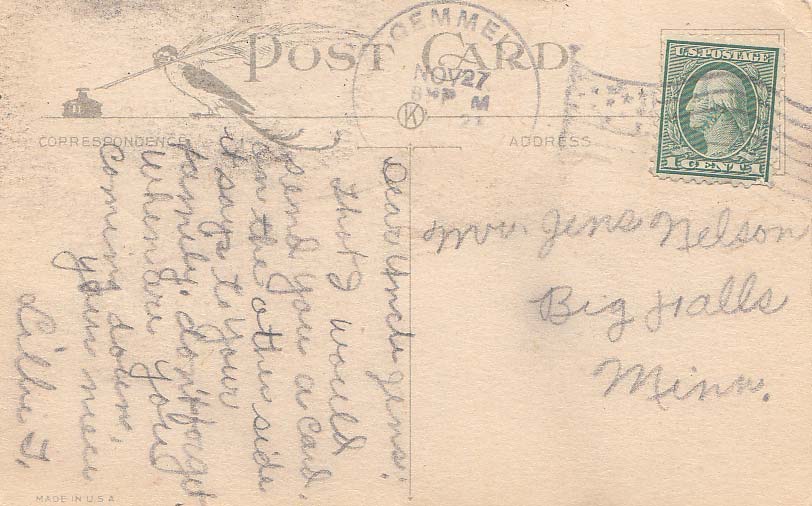 POST CARD
GEMMEL
NOV 27
M
K
U.S. POSTAGE
1 CENT 1
CORRESPONDENCE
ADDRESS
Dear Uncle Jens:
Thot I would
send you a card.
on the other side
it says to your
family. don't forget
When are you
coming down.
your niece
Lillie T.
Mr. Jens Nelson
Big Falls
Minn.
MADE IN U.S.A